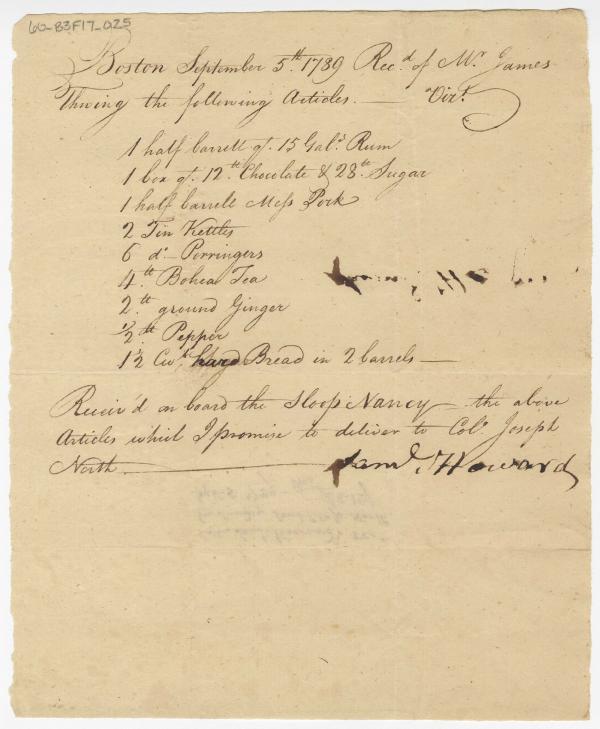 60-83F17-025
Boston September 5th. 1789 Recd. of Mr. James
Thwing the following Articles. — Vizt.
1 half barrell qt. 15 Gals. Rum
1 box qt. 12th. Chocolate & 28th. Sugar
1 half barrell Mess Pork
2 Tin Kettles
6 do— Porringers
4th. Bohea Tea
2th. ground Ginger
1/2th. Pepper
1 1/2 Cwt. hard Bread in 2 barrels —
Receiv'd on board the Sloop Nancy — the above
Articles which I promise to deliver to Colo. Joseph
North — Saml. Howard